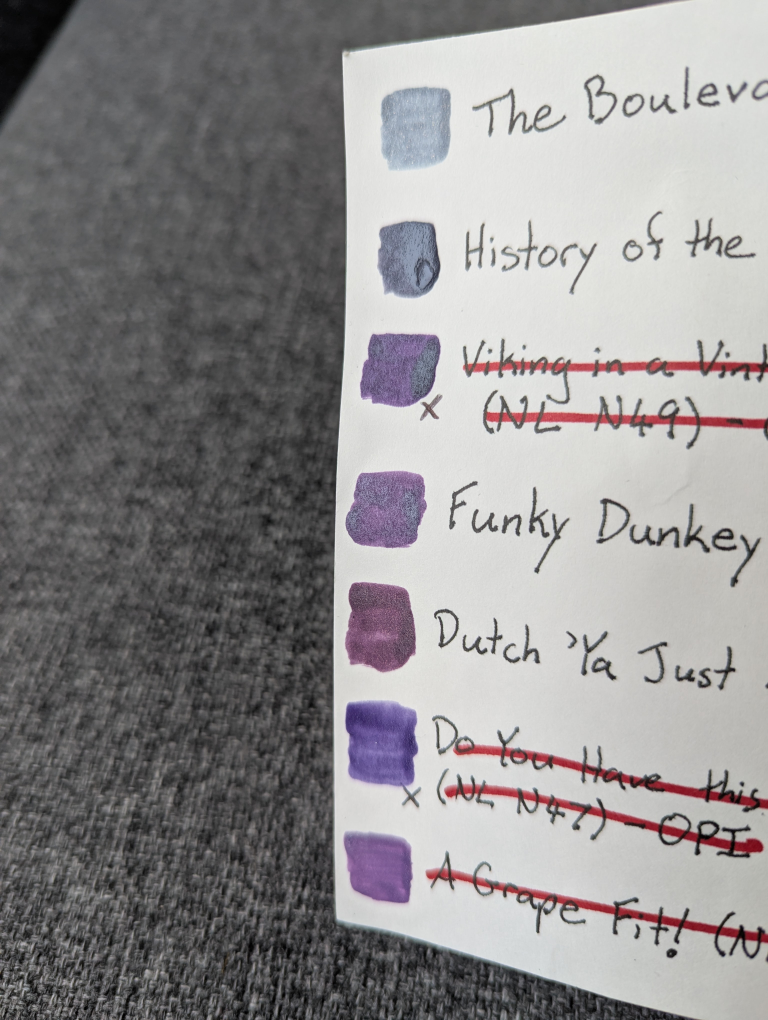 The Bouleva
History of the
Viking in a Vint
(NL N49) - (
Funky Dunkey
Dutch 'Ya Just
Do You Have this
(NL N47) - OPI
A Grape Fit! (N